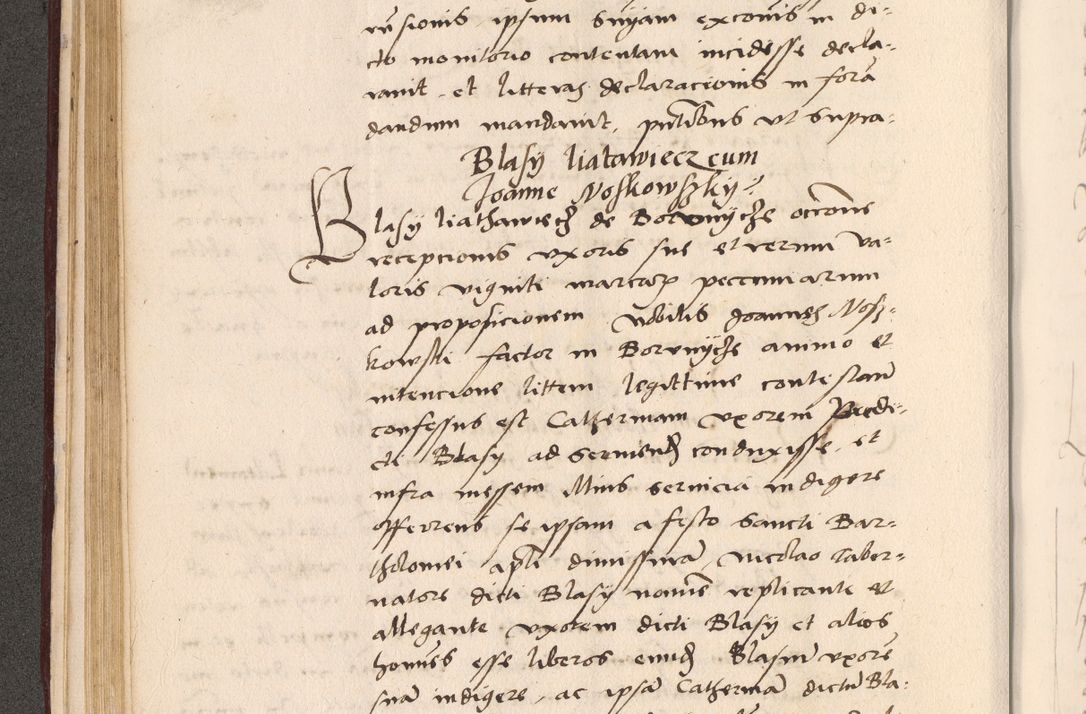 risionis ipsum Suyam exconis in di-
cto monitorio contentam incidisse decla-
ravit. et litteras declaracionis in forã
dandum mandavit, pntibus ut supra-
Blasy liatawiecz cum
Joanne Noskowszky
Blasy liathawiecz de Borunycze occone
recepcionis uxoris sue et rerum va-
loris viginti marcarum pecuniarum
ad proposicionem Nobilis Joannes Nosz-
kowski factor in Borunycze animo et
intencione littem legittime contestan
confessus est Catherinam uxorem prede-
cti Blasy ad serviend conduxisse, et
infra messem illius servicia indigere
offerens se ipsam a festo Sancti Bar-
tholomei apli dimissurã, Nicolao taber-
natore dicti Blasy nomine replicante et
allegante uxorem dicti Blasy et alios
homines esse liberos eund Blasium uxore
sua indigere, ac ipsã Catherinã dictũ Bla-